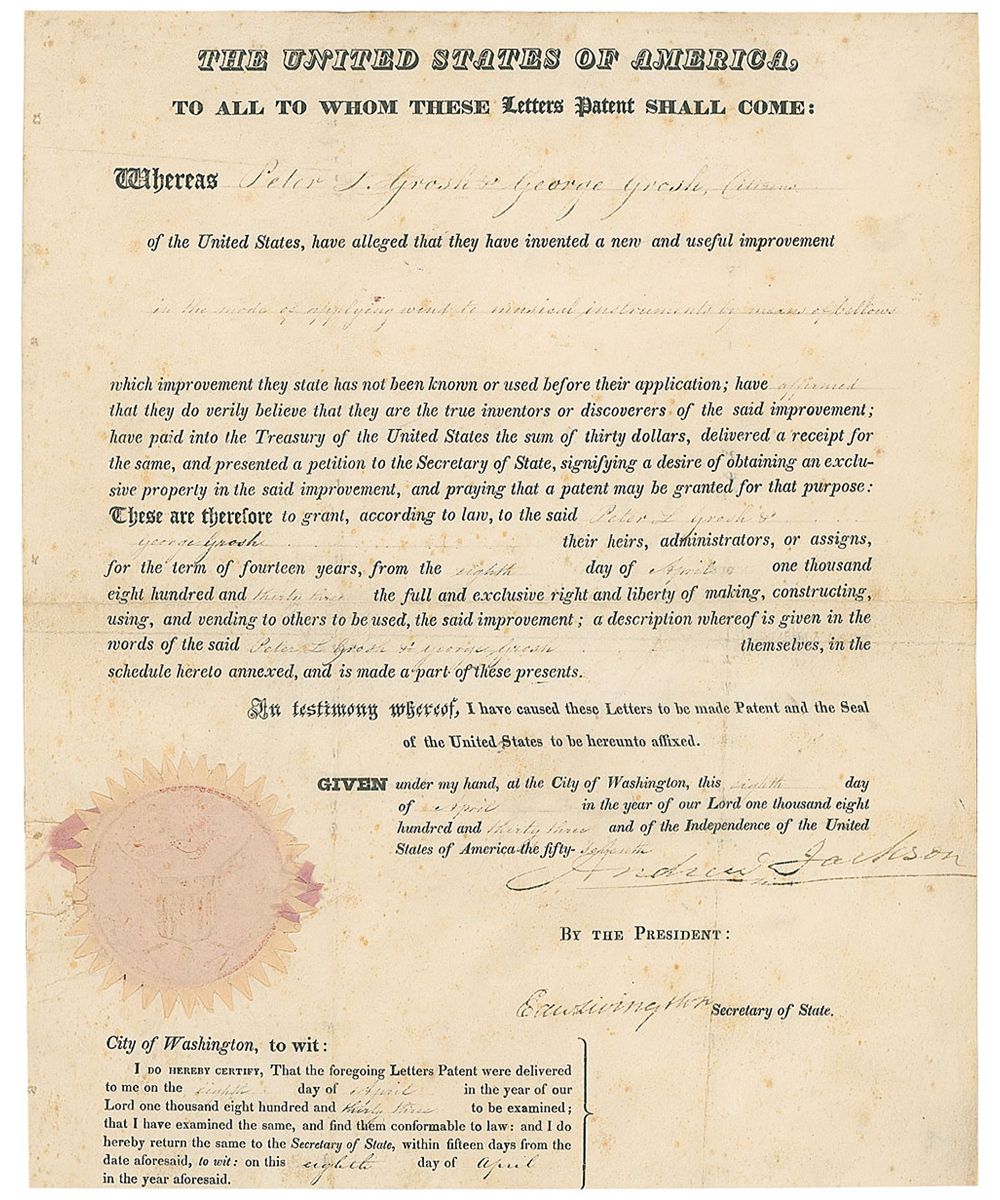 THE UNITED STATES OF AMERICA,
TO ALL TO WHOM THESE Letters Patent SHALL COME:
Whereas Peter L. Grosh & George Grosh, Citizens
of the United States, have alleged that they have invented a new and useful improvement
in the mode of applying wind to musical instruments by means of bellows
which improvement they state has not been known or used before their application; have affirmed
that they do verily believe that they are the true inventors or discoverers of the said improvement;
have paid into the Treasury of the United States the sum of thirty dollars, delivered a receipt for
the same, and presented a petition to the Secretary of State, signifying a desire of obtaining an exclu-
sive property in the said improvement, and praying that a patent may be granted for that purpose:
These are therefore to grant, according to law, to the said Peter L Grosh &
George Grosh their heirs, administrators, or assigns,
for the term of fourteen years, from the eighth day of April one thousand
eight hundred and thirty three the full and exclusive right and liberty of making, constructing,
using, and vending to others to be used, the said improvement; a description whereof is given in the
words of the said Peter L Grosh & George Grosh themselves, in the
schedule hereto annexed, and is made a part of these presents.
In testimony whereof, I have caused these Letters to be made Patent and the Seal
of the United States to be hereunto affixed.
GIVEN under my hand, at the City of Washington, this eighth day
of April in the year of our Lord one thousand eight
hundred and thirty three and of the Independence of the United
States of America the fifty-seventh
Andrew Jackson
BY THE PRESIDENT:
Edw Livingston Secretary of State.
City of Washington, to wit:
I DO HEREBY CERTIFY, That the foregoing Letters Patent were delivered
to me on the eighth day of April in the year of our
Lord one thousand eight hundred and thirty three to be examined;
that I have examined the same, and find them conformable to law: and I do
hereby return the same to the Secretary of State, within fifteen days from the
date aforesaid, to wit: on this eighth day of April
in the year aforesaid.